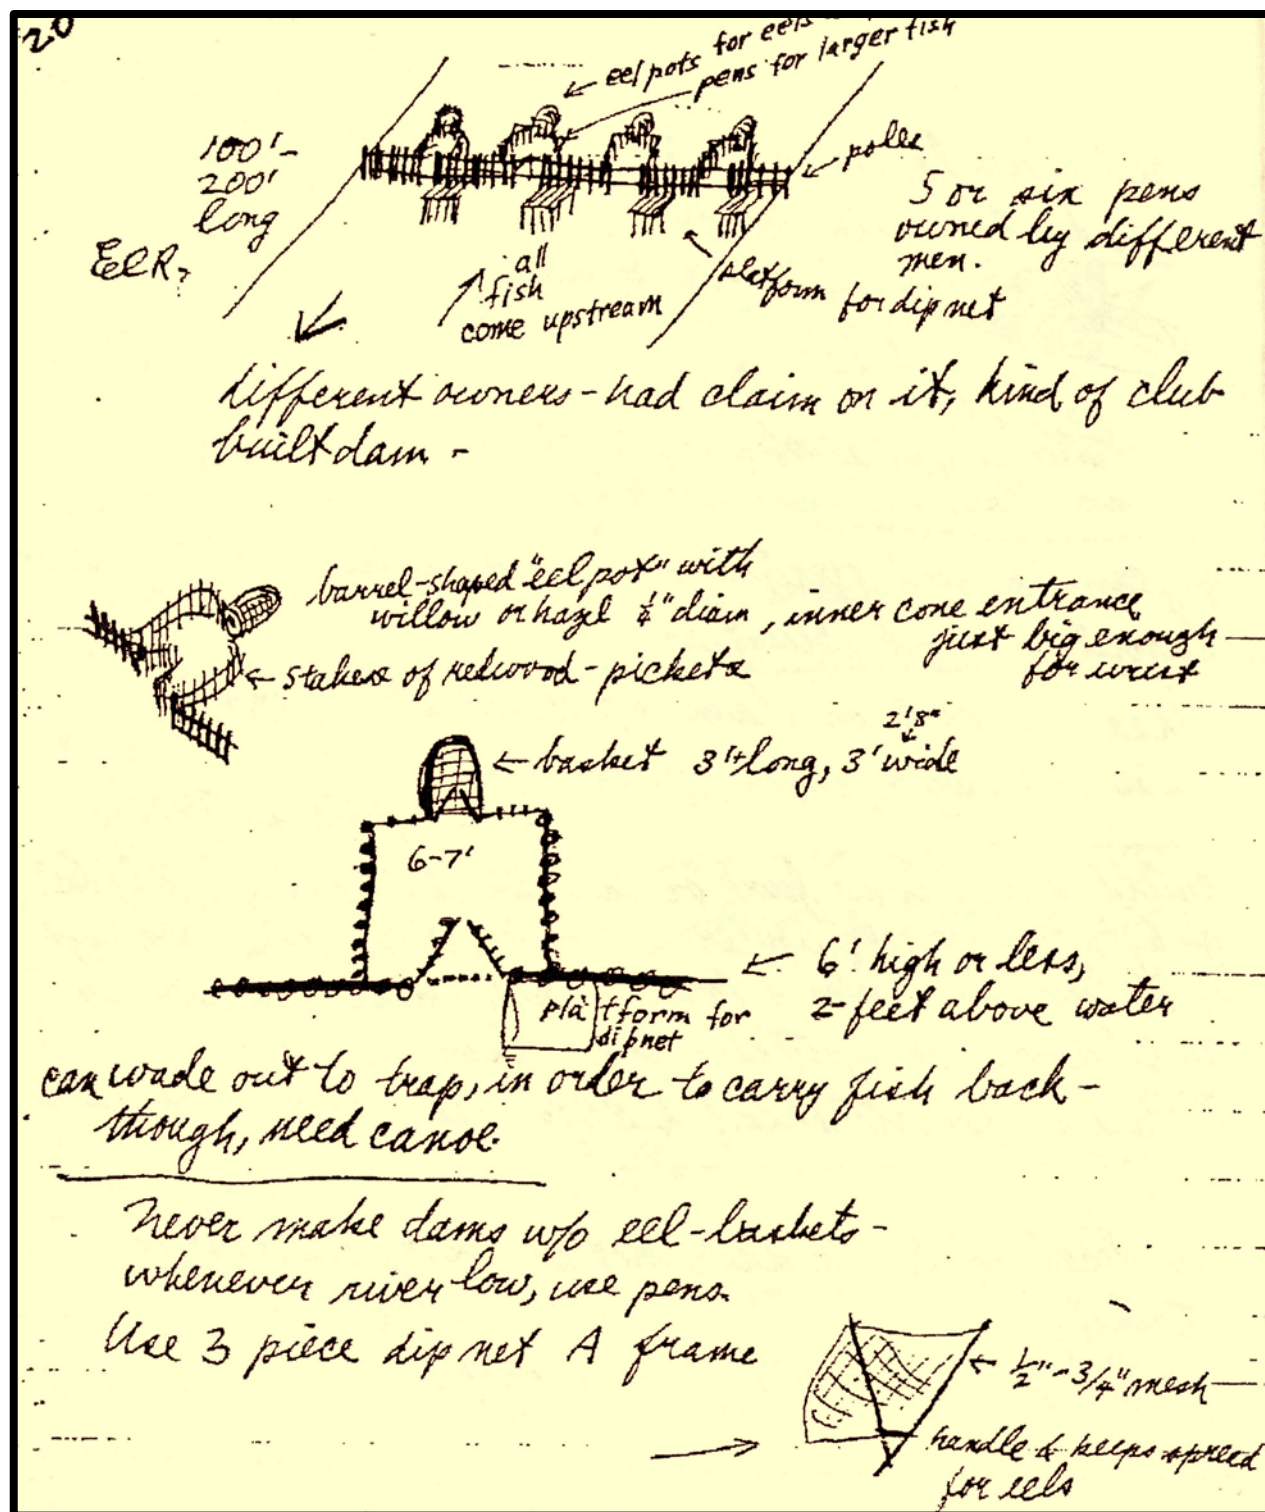 20
eel pots for eels
pens for larger fish
100'-
200'
long
Eel R.
poles
5 or six pens
owned by different
men.
all
fish
come upstream
platform for dip net
different owners - had claim on it, kind of club
built dam -
barrel-shaped "eel pot" with
willow or hazel ¼" diam, inner cone entrance
just big enough
for wrist
stakes of redwood - pickets
2'8"
basket 3'+ long, 3' wide
6-7'
6' high or less,
2-feet above water
platform for
dip net
can wade out to trap, in order to carry fish back -
though, need canoe.
Never make dams w/o eel-baskets -
whenever river low, use pens.
Use 3 piece dip net A frame
½" - 3/4" mesh
handle & keeps spread
for eels